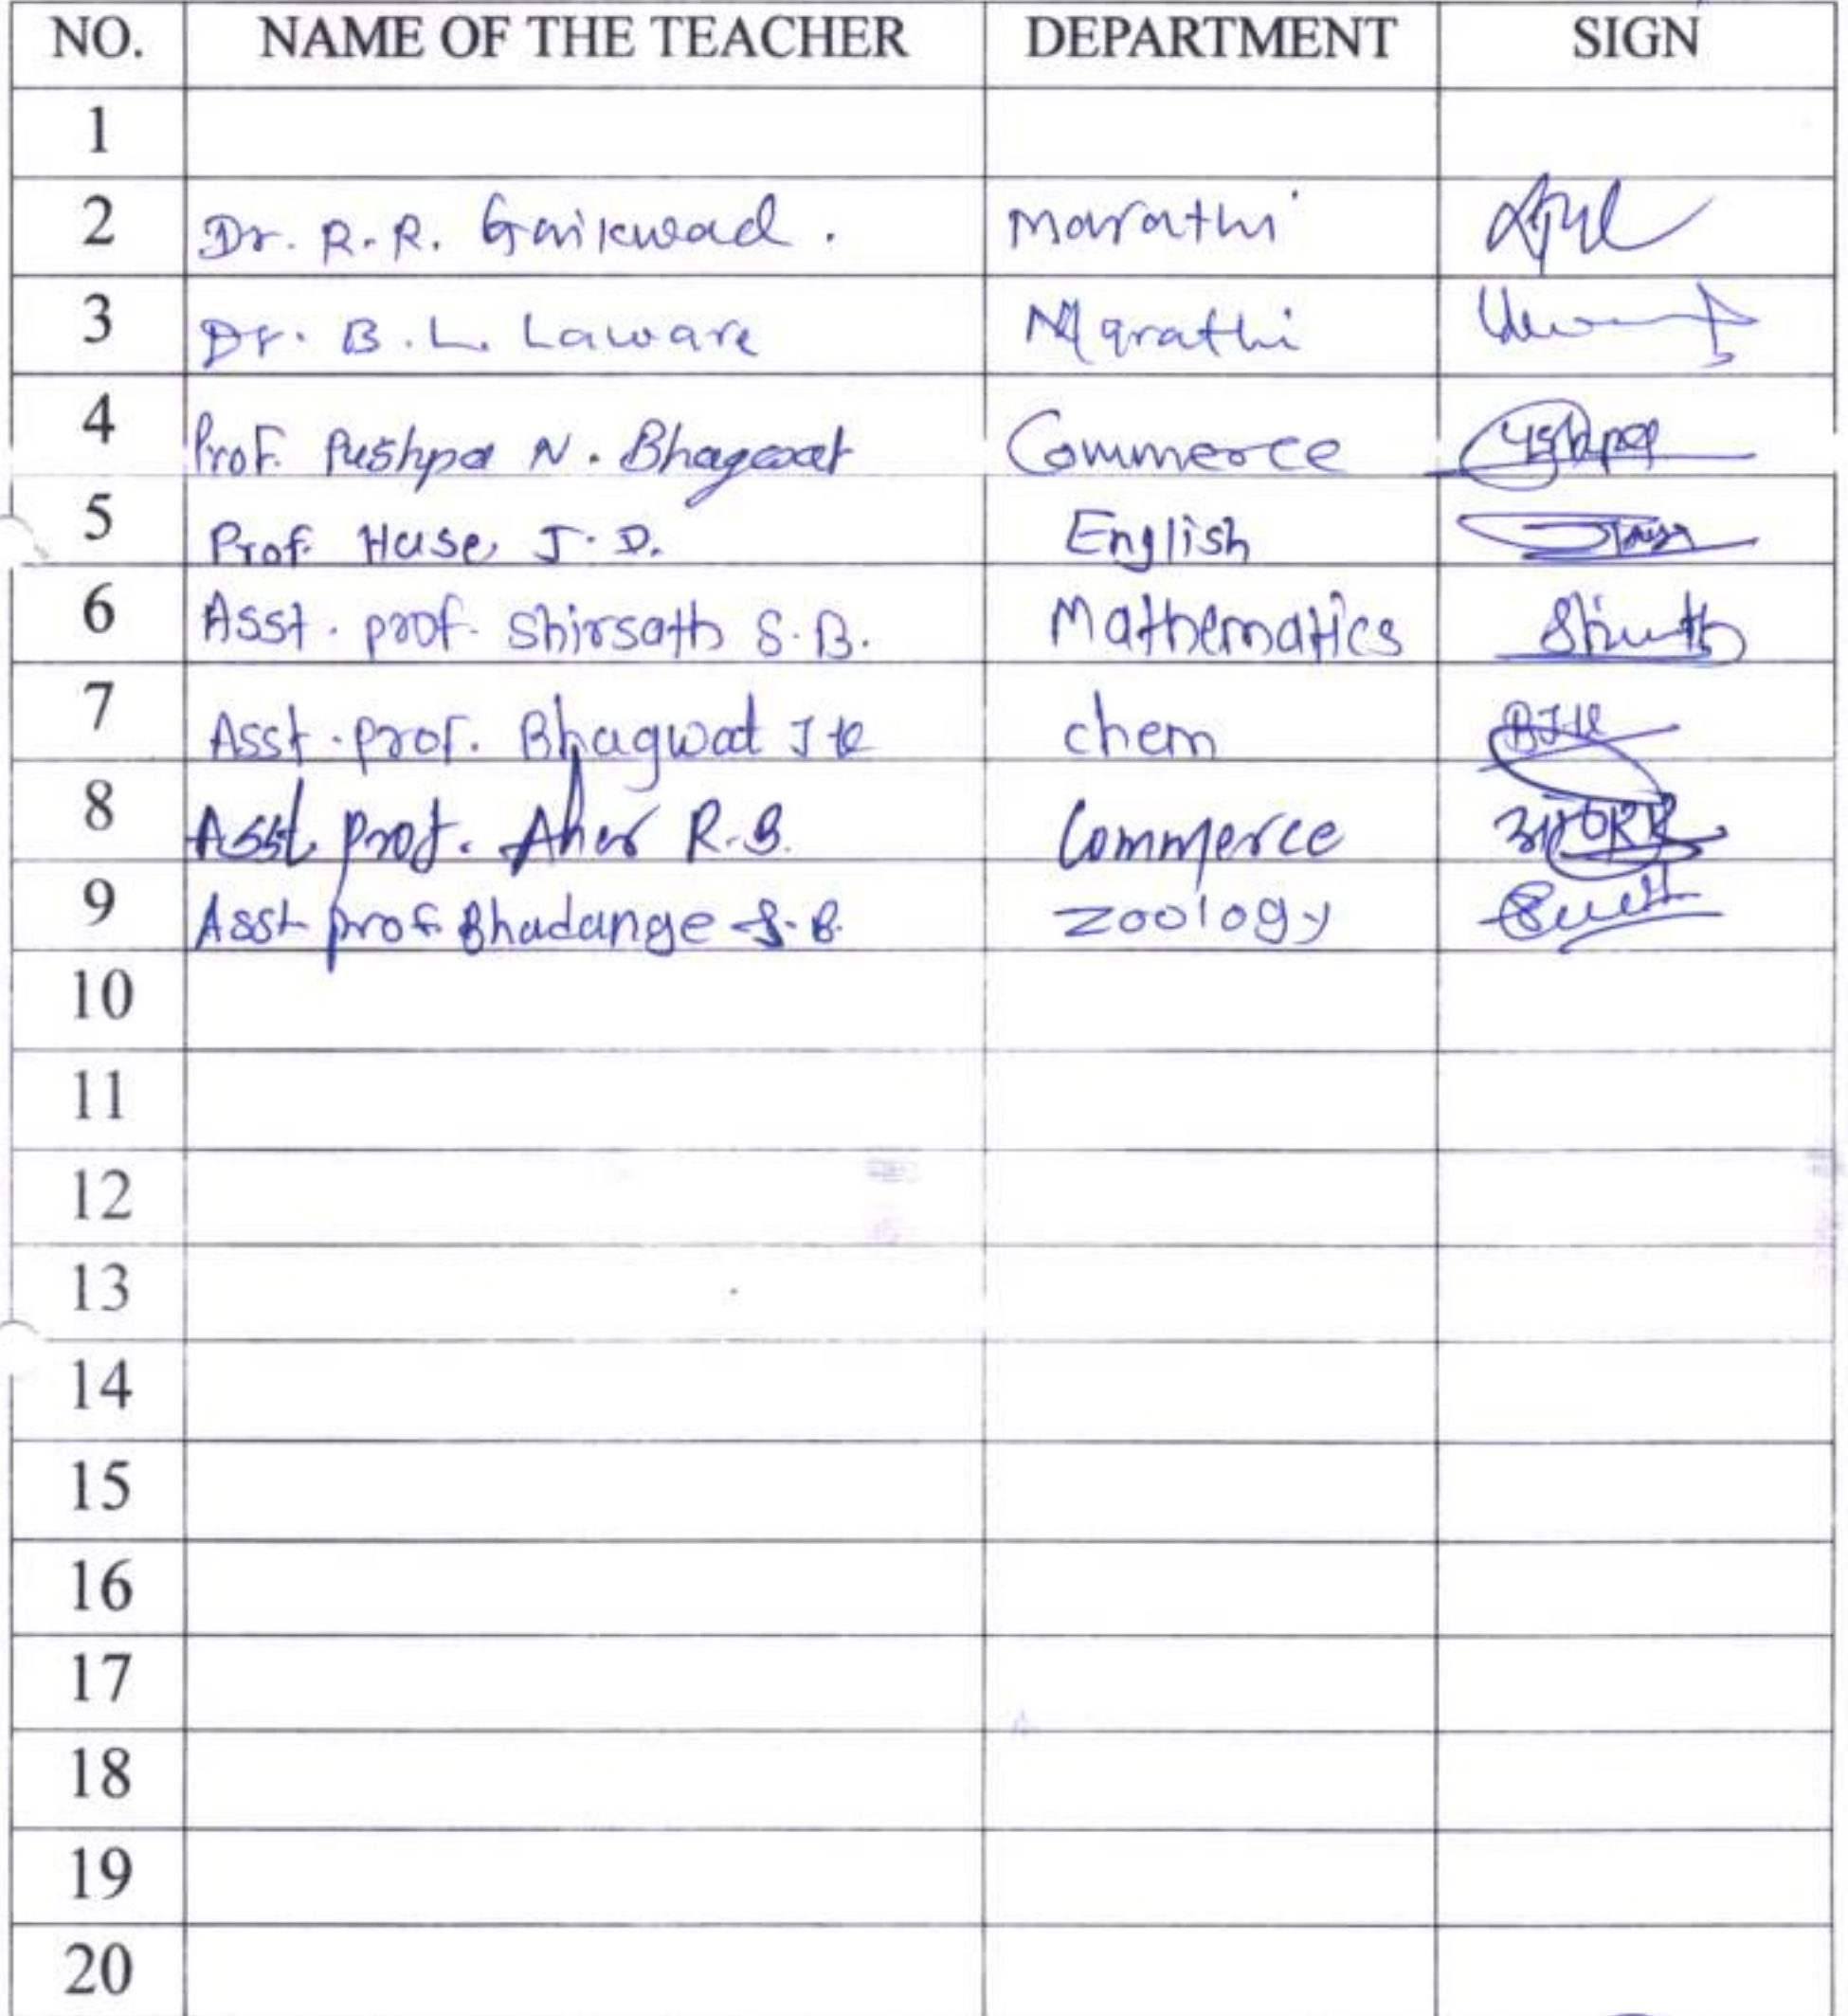 NO. NAME OF THE TEACHER DEPARTMENT SIGN
1
2 Dr. R.R. Gaikwad. Marathi
3 Dr. B.L. Laware Marathi
4 Prof. Pushpa N. Bhagwat Commerce
5 Prof. Hase J.D. English
6 Asst. prof. Shirsath S.B. Mathematics
7 Asst. prof. Bhagwat J K chem
8 Asst prof. Aher R.B. Commerce
9 Asst prof. Bhadange S.B. zoology
10
11
12
13
14
15
16
17
18
19
20